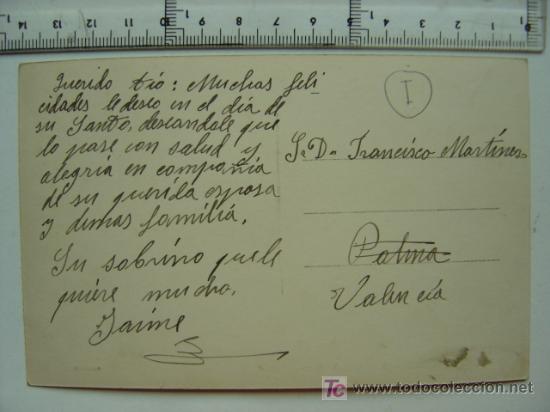 Querido tío: Muchas feli
cidades le deseo en el día de
su Santo, deseandole que
lo pase con salud y
alegria en compañia
de su querida esposa
y demas familia.
Su sobrino que le
quiere mucho.
Jaime
I
S. D. Francisco Martínez
Palma
Valencia
TC todocoleccion
www.todocoleccion.net
1 2 3 4 5 6 7 8 9 10 11 12 13 14